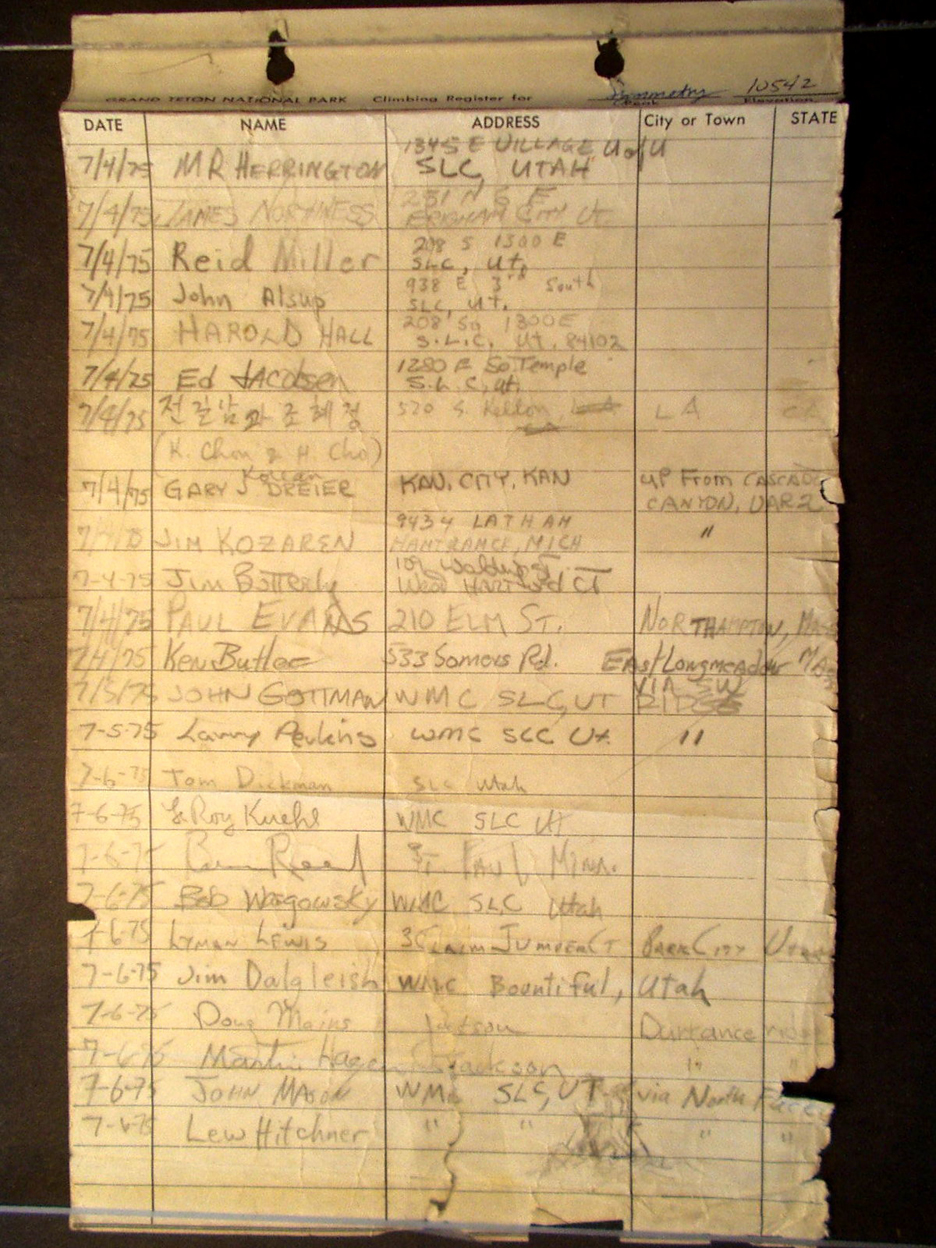 GRAND TETON NATIONAL PARK Climbing Register for Symmetry 10542
Peak Elevation
DATE NAME ADDRESS City or Town STATE
1345 E VILLAGE U of U
7/4/75 MR HERRINGTON SLC, UTAH
251 N 6 E
7/4/75 JAMES CITY UT.
208 S 1300 E
7/4/75 Reid Miller SLC, Ut,
938 E 3rd South
7/4/75 John Alsup SLC, Ut.
208 So 1300 E
7/4/75 HAROLD HALL S.L.C, Ut. 84102
1280 E So. Temple
7/4/75 Ed Jacobsen S.L.C, Ut.
7/4/75 전길남과 조혜정 520 S. Kelton, LA LA CA
LA
(K. Chon & H. Cho)
Korean
7/4/75 GARY J DREIER KAN. CITY, KAN UP From CASCADE
CANYON, VAR 2
9434 LATHAM
JIM KOZAREN HAMTRAMCK, MICH "
7-4-75 Jim Butterly West Hartford CT
7/4/75 PAUL EVANS 210 ELM ST. NORTHAMPTON, Mass
7/4/75 Ken Butler 533 Somers Rd. East Longmeadow Mass
7/5/75 JOHN GOTTMAN WMC SLC, UT VIA SW
RIDGE
7-5-75 Larry Perkins WMC SLC Ut. "
7-6-75 Tom Dickman SLC Utah
7-6-75 LeRoy Kuehl WMC SLC Ut
7-6-75 Reed St. Paul Minn.
7-6-75 Bob Wasgowsky WMC SLC Utah
7-6-75 LYMAN LEWIS 3 Claim Jumper Ct Park City Utah
7-6-75 Jim Dalgleish WMC Bountiful, Utah
7-6-75 Doug Mains Jackson Durrance ridge
7-6-75 Martin Hagen Jackson " "
7-6-75 JOHN MASON WMC SLC, UT via North Face
7-6-75 Lew Hitchner " " " "